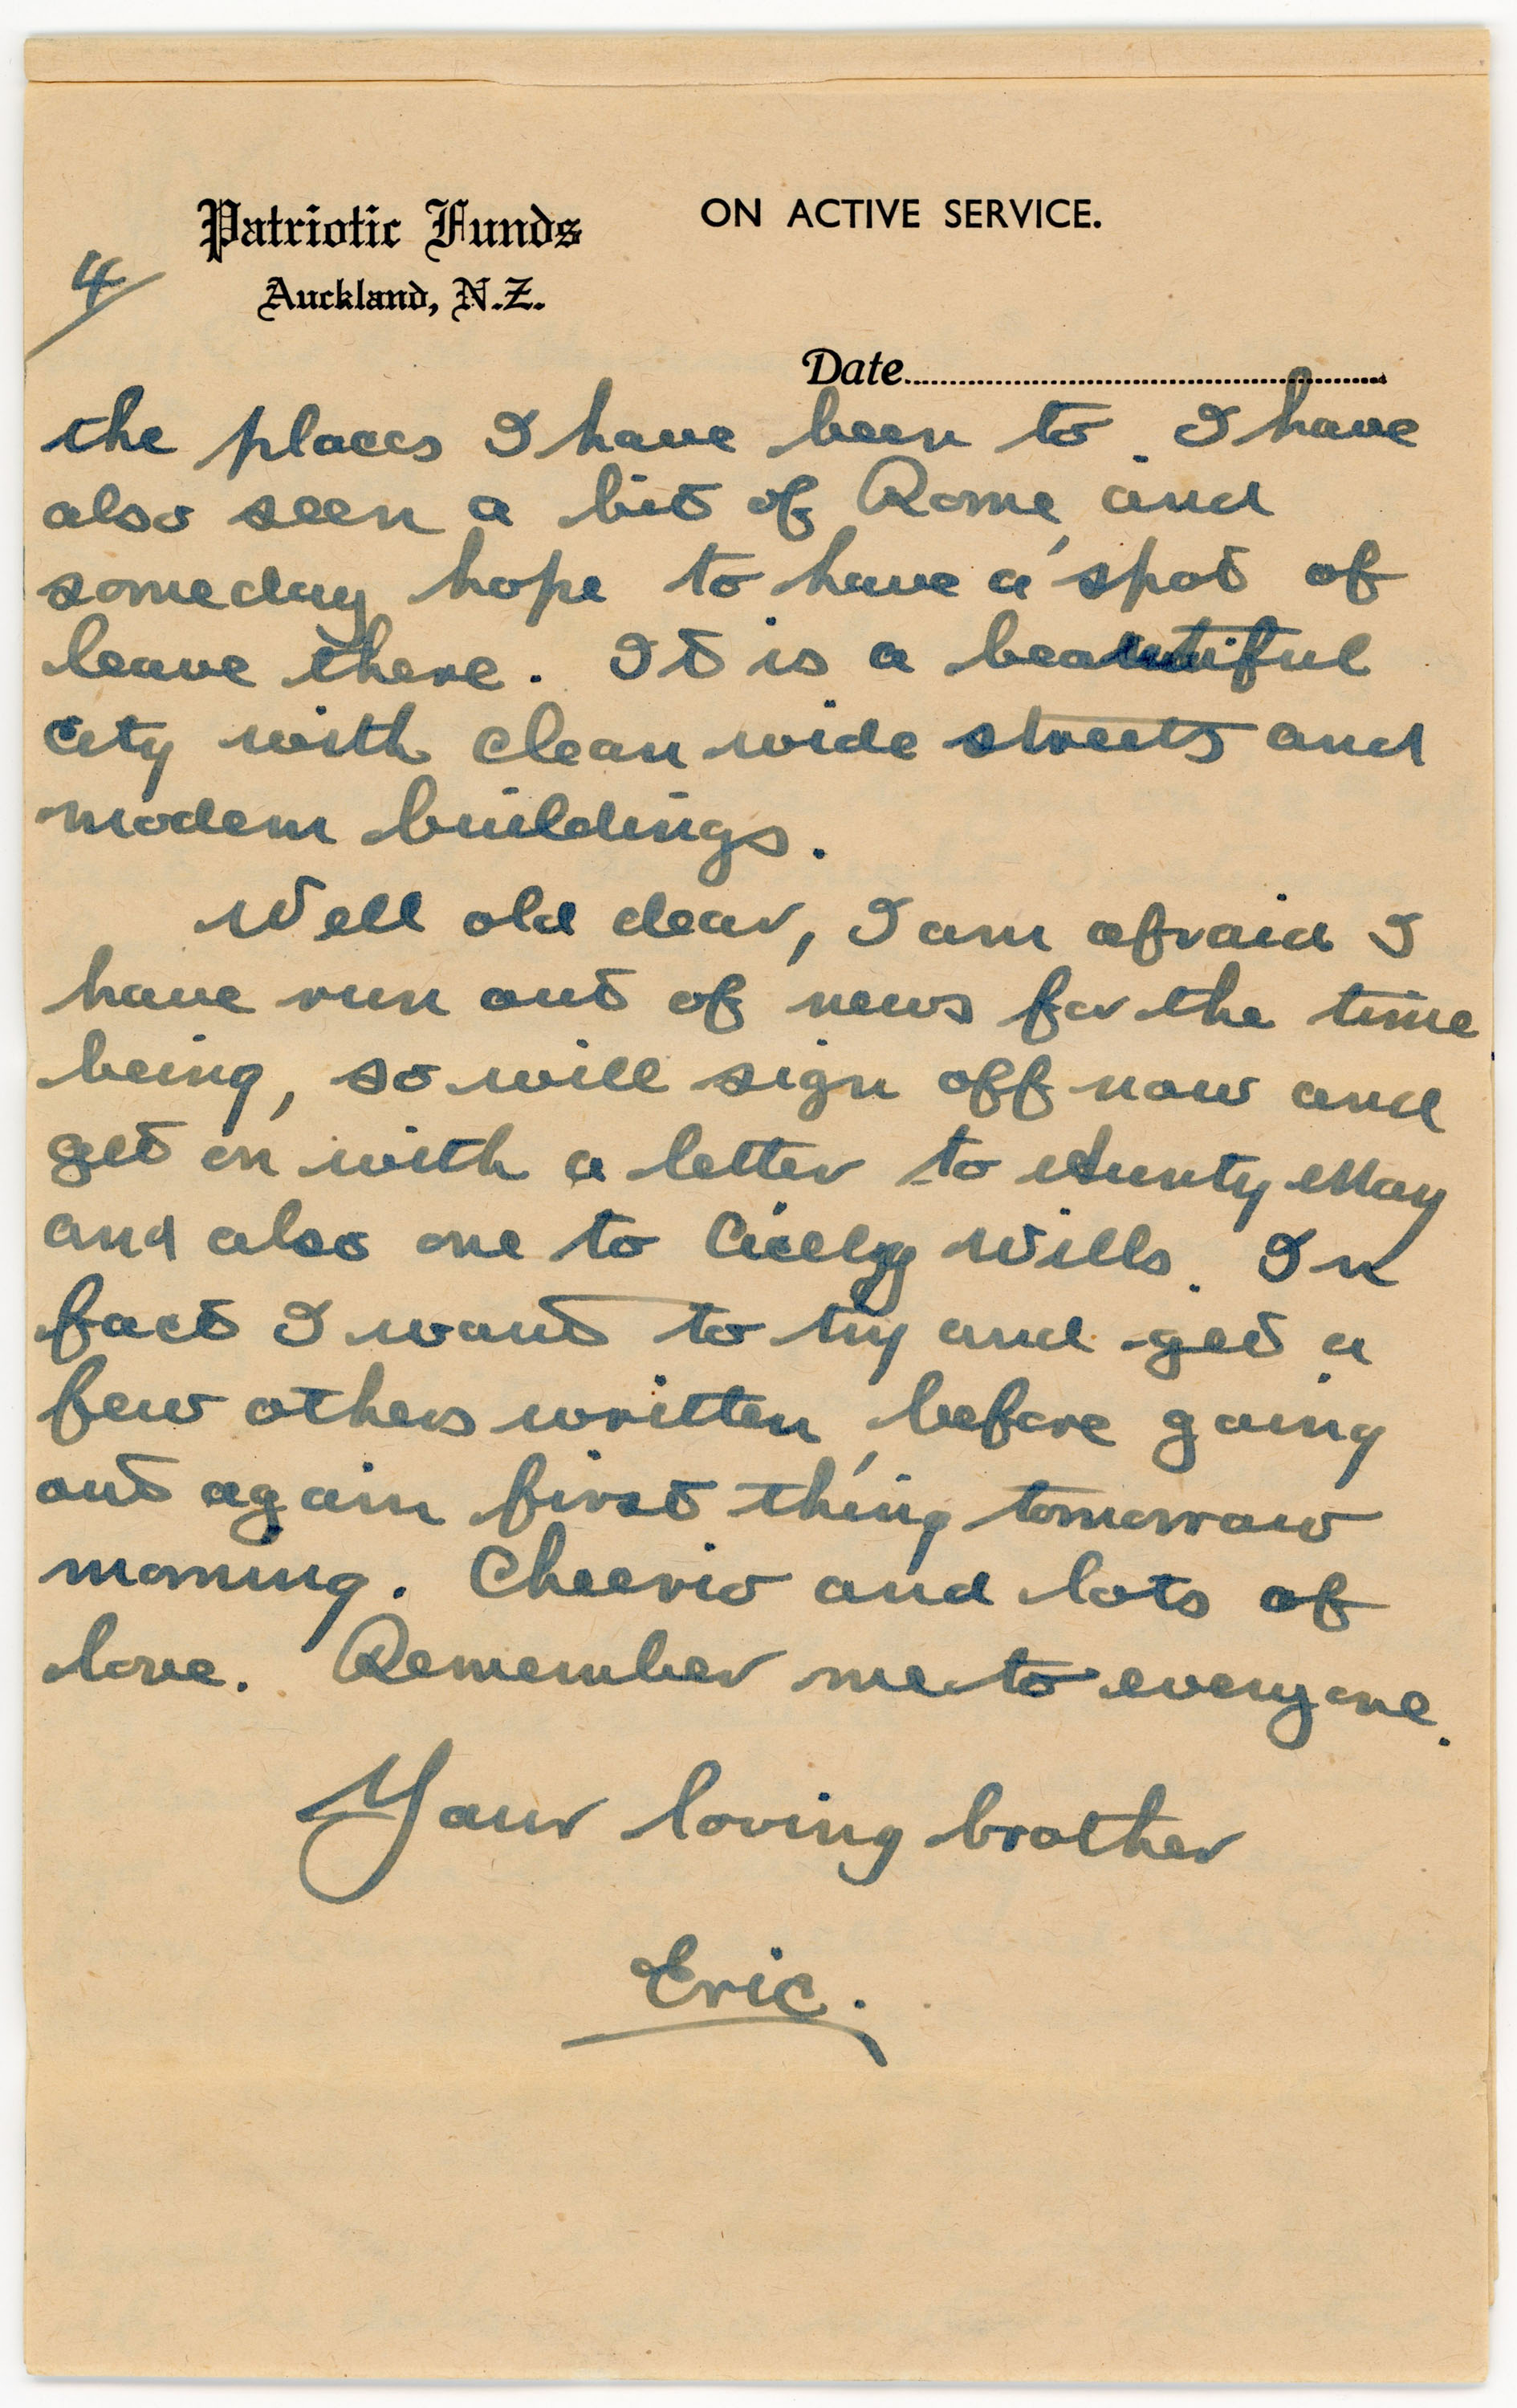 Patriotic Funds
Auckland, N.Z.
ON ACTIVE SERVICE.
4/
Date
the places I have been to. I have
also seen a bit of Rome, and
someday hope to have a spot of
leave there. It is a beautiful
city with clean wide streets and
modern buildings.
Well old dear, I am afraid I
have run out of news for the time
being, so will sign off now and
get on with a letter to Aunty May
and also one to Cicely Wills. In
fact I want to try and get a
few others written, before going
out again first thing tomorrow
morning. Cheerio and lots of
love. Remember me to everyone.
Your loving brother
Eric.